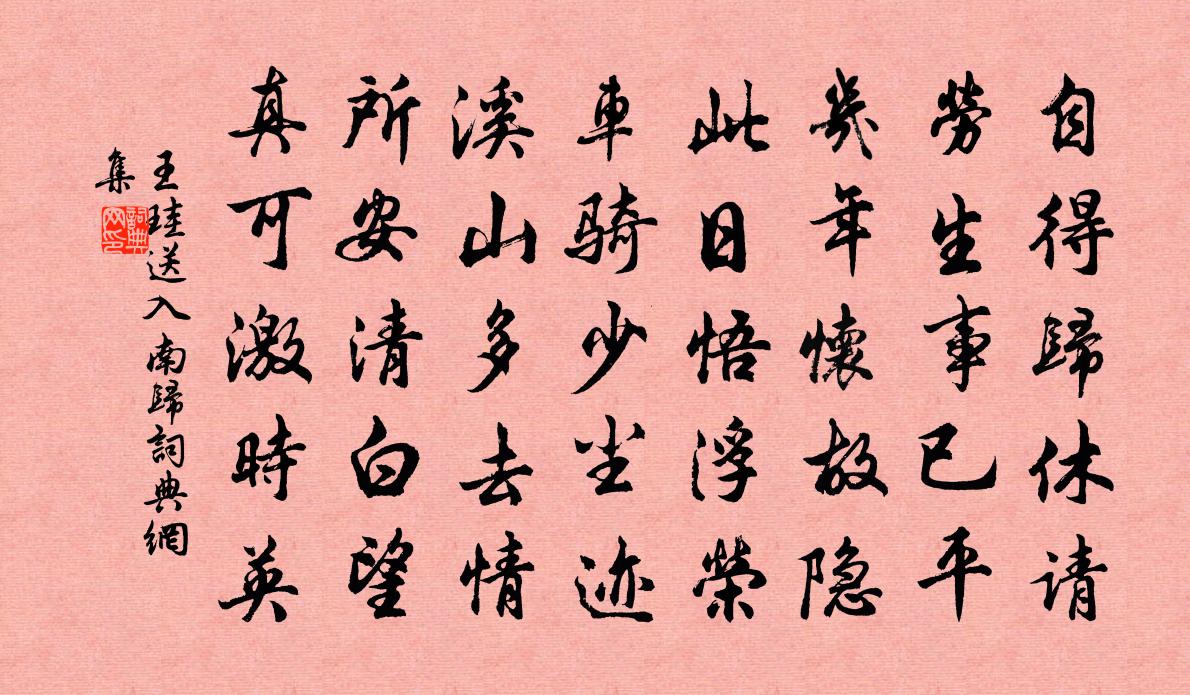 自得歸休请
勞生事已平
幾年懷故隐
此日悟浮榮
車骑少尘迹
溪山多去情
所安清白望
真可激時英
王珪送入南歸詞典網
集
詞典
网印